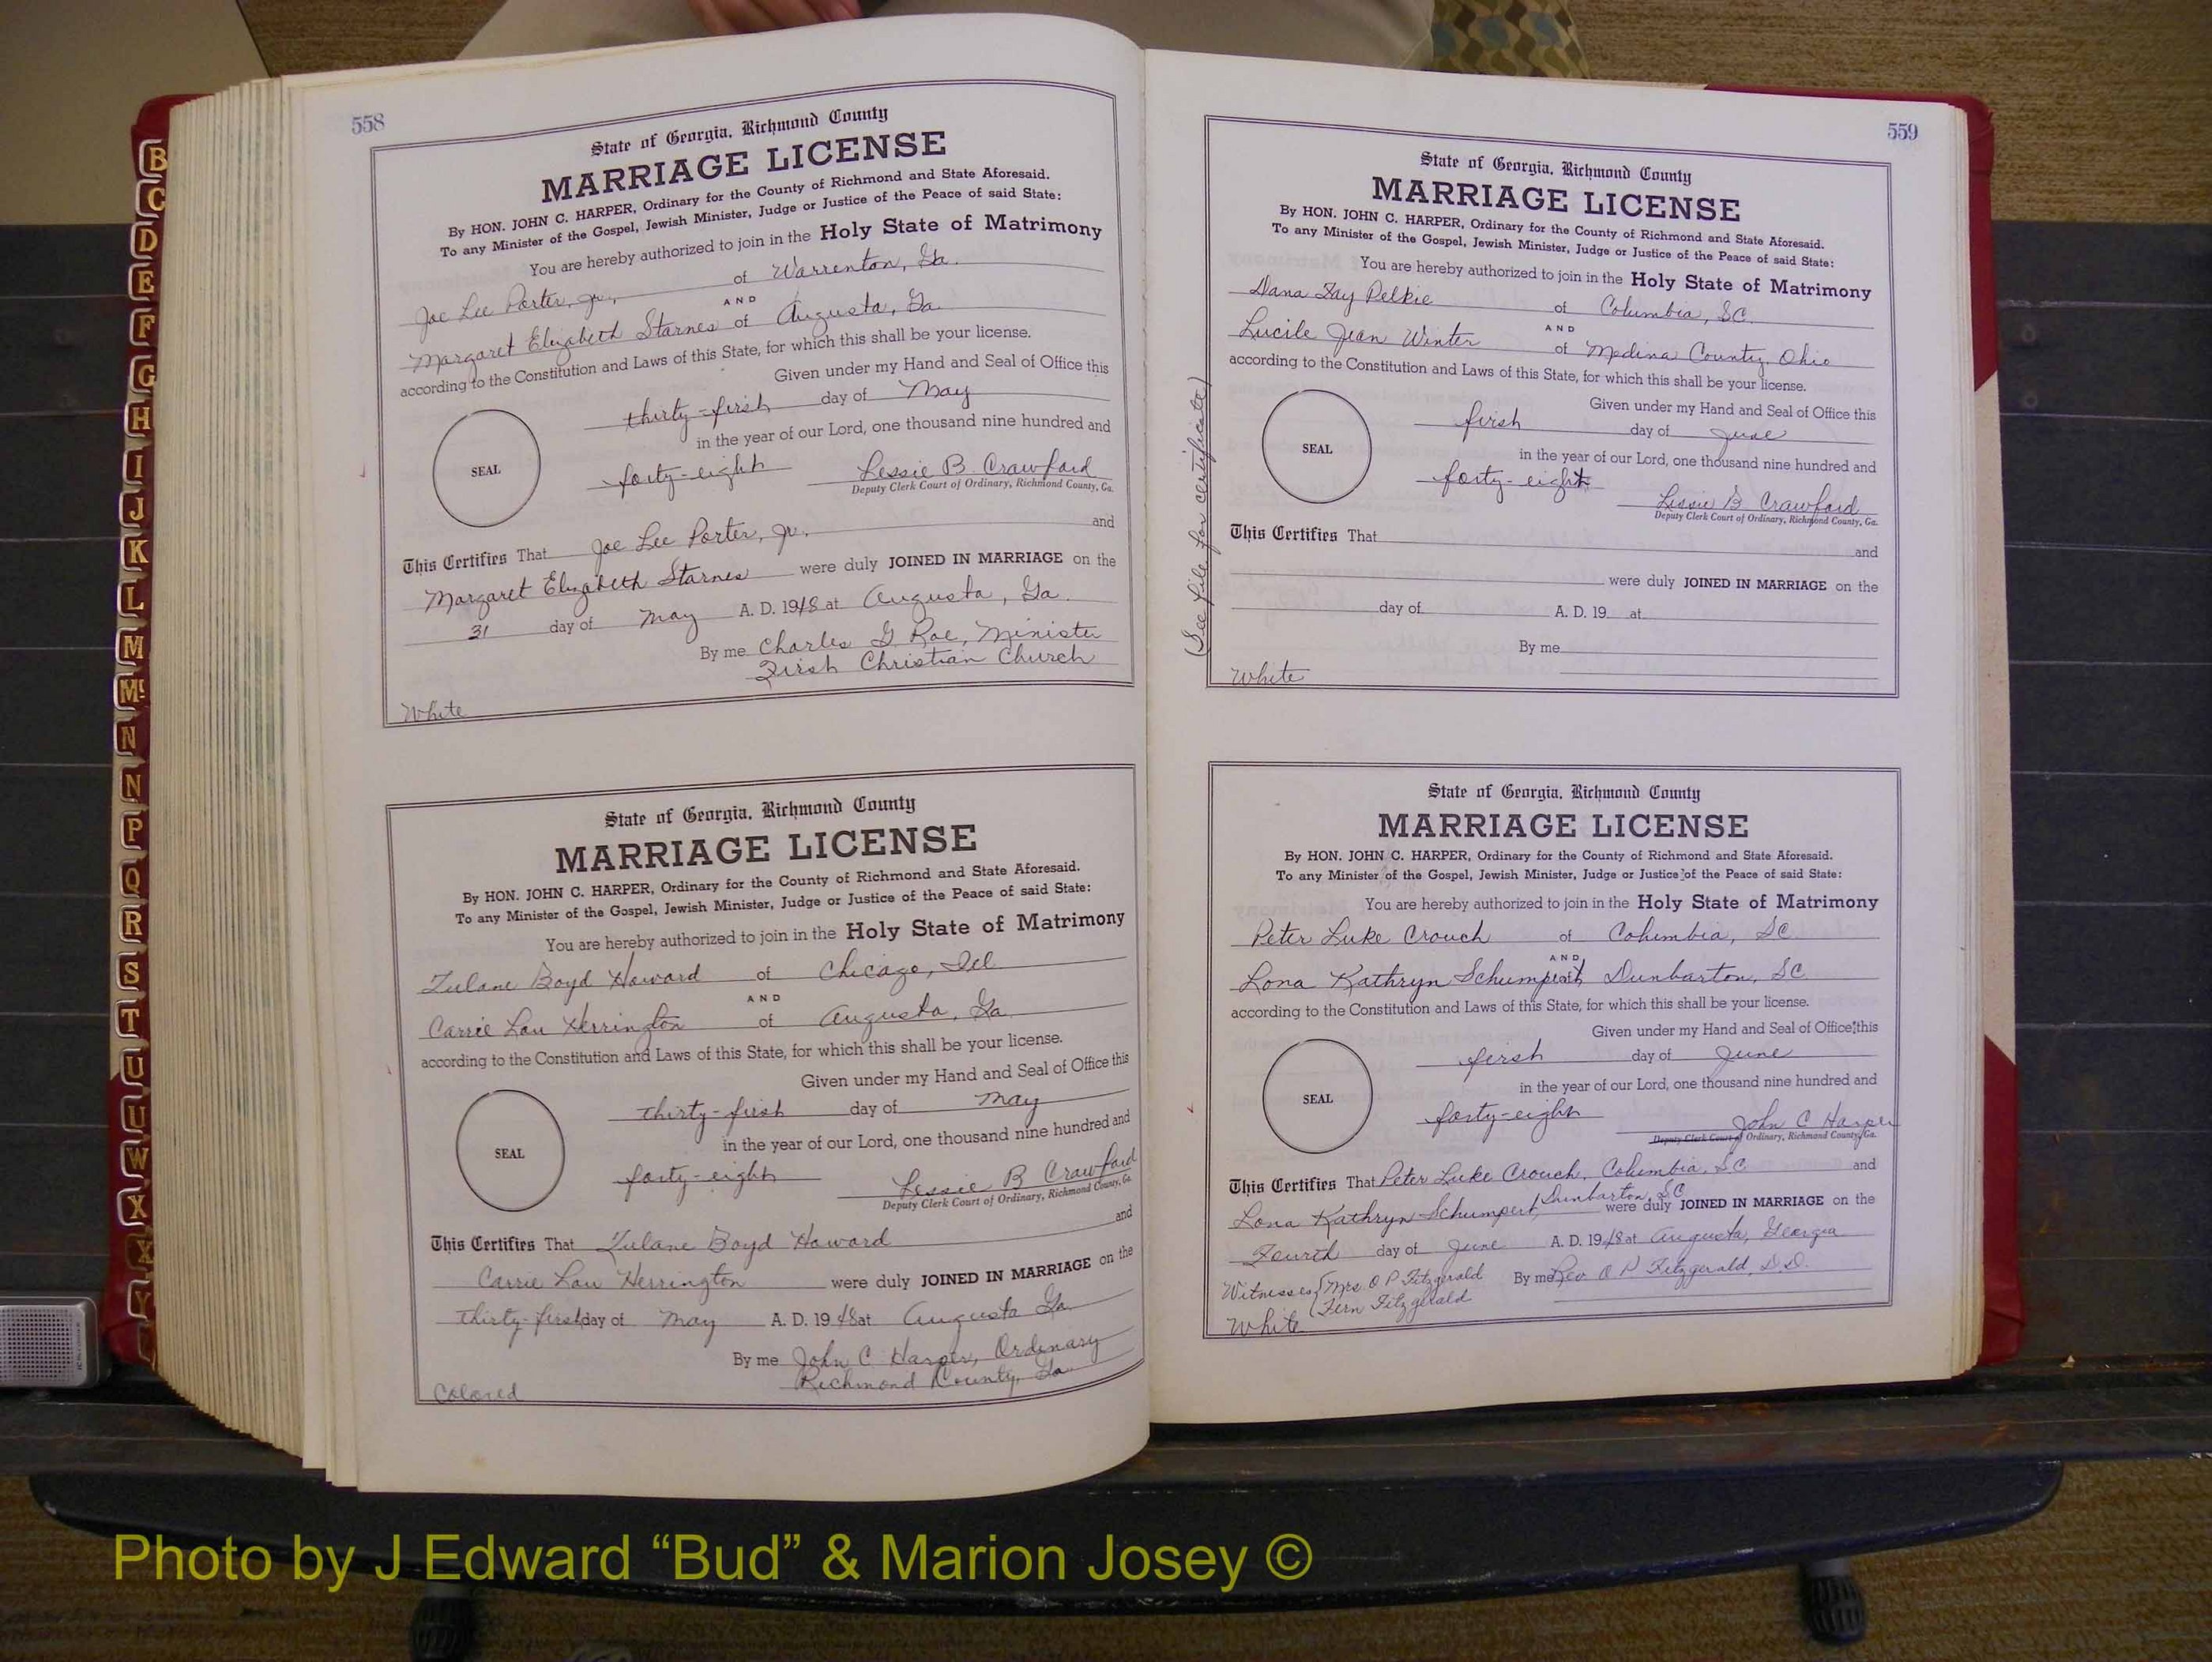 B
C
D
E
F
G
H
I
J
K
L
M
Mc
N
N
P
Q
R
S
T
U
U
W
X
X
Y
558
State of Georgia, Richmond County
MARRIAGE LICENSE
By HON. JOHN C. HARPER, Ordinary for the County of Richmond and State Aforesaid.
To any Minister of the Gospel, Jewish Minister, Judge or Justice of the Peace of said State:
You are hereby authorized to join in the Holy State of Matrimony
Joe Lee Porter, Jr., of Warrenton, Ga.
AND
Margaret Elizabeth Starnes of Augusta, Ga.
according to the Constitution and Laws of this State, for which this shall be your license.
Given under my Hand and Seal of Office this
thirty-first day of May
in the year of our Lord, one thousand nine hundred and
SEAL
forty-eight Lessie B. Crawford
Deputy Clerk Court of Ordinary, Richmond County, Ga.
This Certifies That Joe Lee Porter, Jr. and
Margaret Elizabeth Starnes were duly JOINED IN MARRIAGE on the
31 day of May A. D. 1948 at Augusta, Ga.
By me Charles G. Roe, Minister
First Christian Church
White
State of Georgia, Richmond County
MARRIAGE LICENSE
By HON. JOHN C. HARPER, Ordinary for the County of Richmond and State Aforesaid.
To any Minister of the Gospel, Jewish Minister, Judge or Justice of the Peace of said State:
You are hereby authorized to join in the Holy State of Matrimony
Tulane Boyd Howard of Chicago, Ill
AND
Carrie Lou Herrington of Augusta, Ga.
according to the Constitution and Laws of this State, for which this shall be your license.
Given under my Hand and Seal of Office this
thirty-first day of May
in the year of our Lord, one thousand nine hundred and
SEAL
forty-eight Lessie B Crawford
Deputy Clerk Court of Ordinary, Richmond County, Ga.
This Certifies That Tulane Boyd Howard and
Carrie Lou Herrington were duly JOINED IN MARRIAGE on the
thirty-first day of May A. D. 1948 at Augusta Ga.
By me John C Harper, Ordinary
Richmond County, Ga
Colored
559
State of Georgia, Richmond County
MARRIAGE LICENSE
By HON. JOHN C. HARPER, Ordinary for the County of Richmond and State Aforesaid.
To any Minister of the Gospel, Jewish Minister, Judge or Justice of the Peace of said State:
You are hereby authorized to join in the Holy State of Matrimony
Dana Fay Pelkie of Columbia, SC.
AND
Lucile Jean Winter of Medina County, Ohio
according to the Constitution and Laws of this State, for which this shall be your license.
Given under my Hand and Seal of Office this
first day of June
in the year of our Lord, one thousand nine hundred and
SEAL
forty-eight Lessie B Crawford
Deputy Clerk Court of Ordinary, Richmond County, Ga.
This Certifies That and
were duly JOINED IN MARRIAGE on the
day of A. D. 19 at
By me
White
(See file for certificate)
State of Georgia, Richmond County
MARRIAGE LICENSE
By HON. JOHN C. HARPER, Ordinary for the County of Richmond and State Aforesaid.
To any Minister of the Gospel, Jewish Minister, Judge or Justice of the Peace of said State:
You are hereby authorized to join in the Holy State of Matrimony
Peter Luke Crouch of Columbia, SC.
AND
Lona Kathryn Schumpert of Dunbarton, SC
according to the Constitution and Laws of this State, for which this shall be your license.
Given under my Hand and Seal of Office this
first day of June
in the year of our Lord, one thousand nine hundred and
SEAL
forty-eight John C Harper
Deputy Clerk Court of Ordinary, Richmond County, Ga.
This Certifies That Peter Luke Crouch, Columbia, SC and
Lona Kathryn Schumpert, Dunbarton, SC were duly JOINED IN MARRIAGE on the
Fourth day of June A. D. 1948 at Augusta, Georgia
Witnesses { Mrs. O P Fitzgerald By me Rev O P Fitzgerald, D.D.
Fern Fitzgerald
White
Photo by J Edward “Bud” & Marion Josey ©